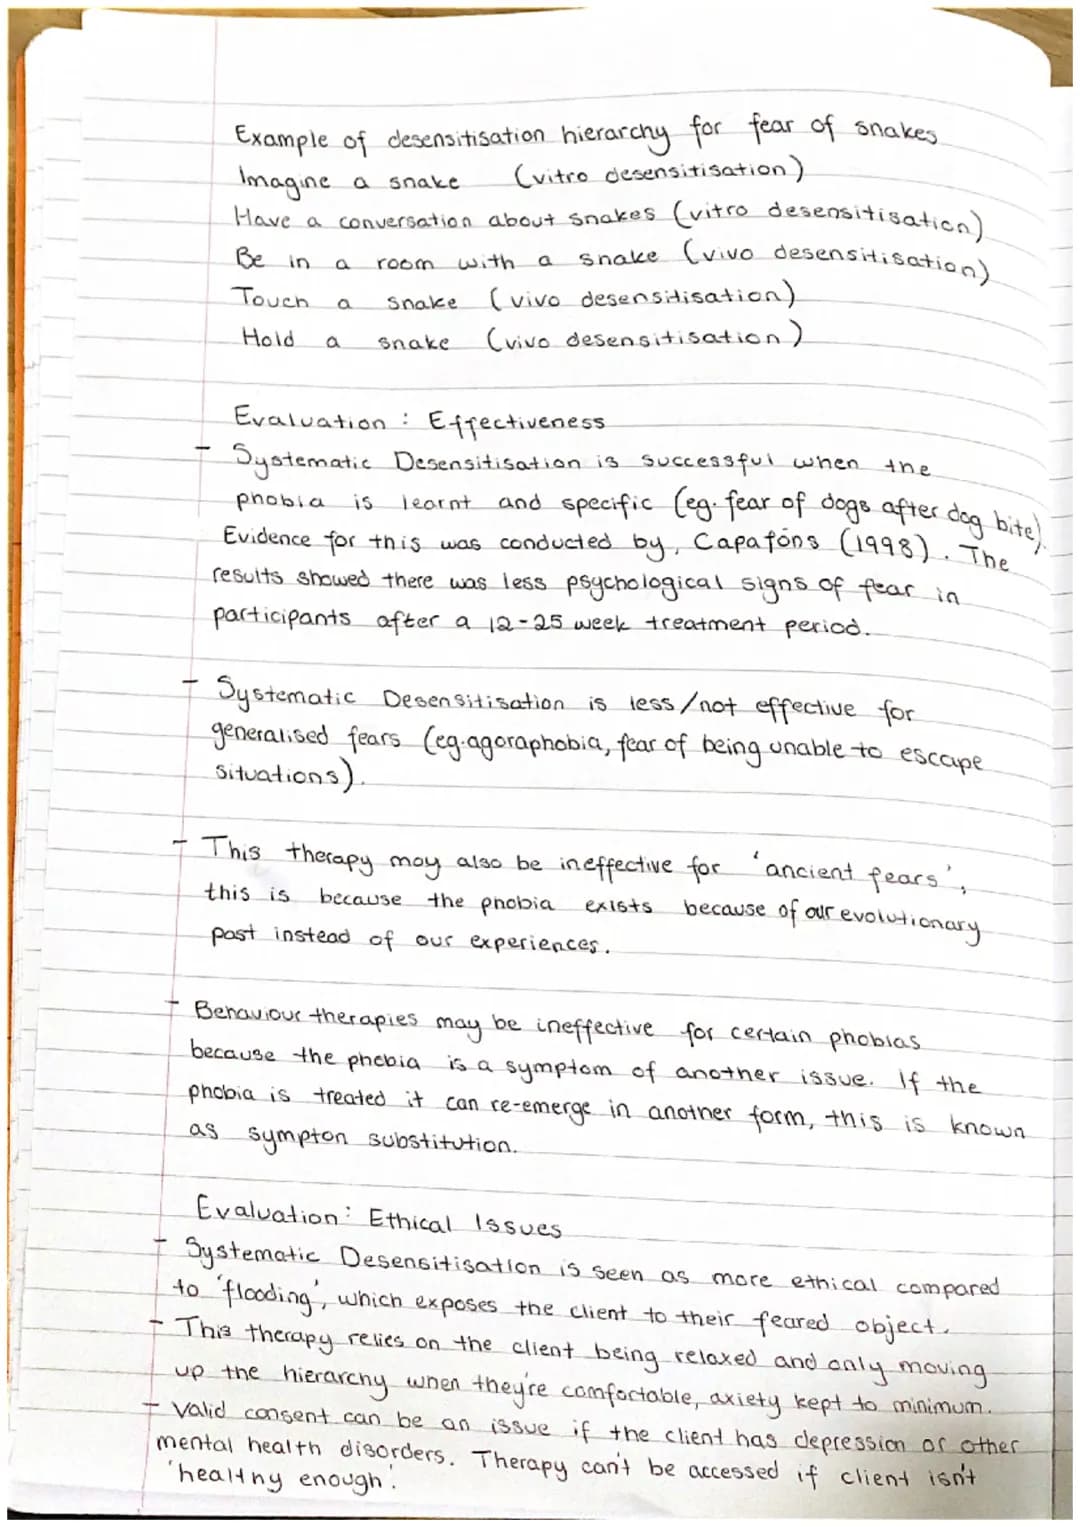 Example of desensitisation hierarchy for fear of snakes
Imagine a snake (vitro desensitisation)
Have a conversation about snakes (vitro desensitisation)
Be in a room with a snake (vivo desensitisation)
Touch a snake (vivo desensitisation)
Hold a snake (vivo desensitisation)
Evaluation : Effectiveness
- Systematic Desensitisation is successful when the
phobia is learnt and specific (eg. fear of dogs after dog bite).
Evidence for this was conducted by, Capafóns (1998). The
results showed there was less psychological signs of fear in
participants after a 12-25 week treatment period.
- Systematic Desensitisation is less/not effective for
generalised fears (eg. agoraphobia, fear of being unable to escape
situations).
- This therapy may also be ineffective for 'ancient fears',
this is because the phobia exists because of our evolutionary
past instead of our experiences.
- Behaviour therapies may be ineffective for certain phobias
because the phobia is a symptom of another issue. If the
phobia is treated it can re-emerge in another form, this is known
as sympton substitution.
Evaluation: Ethical Issues
- Systematic Desensitisation is seen as more ethical compared
to 'flooding', which exposes the client to their feared object.
- This therapy relies on the client being relaxed and only moving
up the hierarchy when they're comfortable, axiety kept to minimum.
- Valid consent can be an issue if the client has depression or other
mental health disorders. Therapy can't be accessed if client isn't
'healthy enough'.